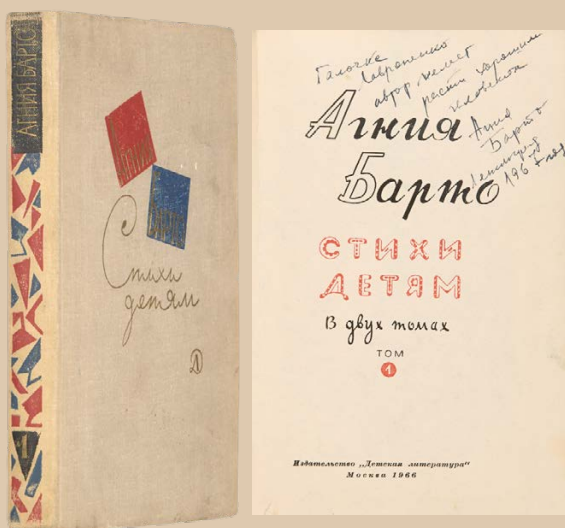 АГНИЯ БАРТО
А.
БАРТО
Стихи
детям
Д
1
Галочке
автор желает
расти хорошим
человеком
Агния
Барто
196
Агния
Барто
СТИХИ
ДЕТЯМ
В двух томах
ТОМ
1
Издательство „Детская литература“
Москва 1966